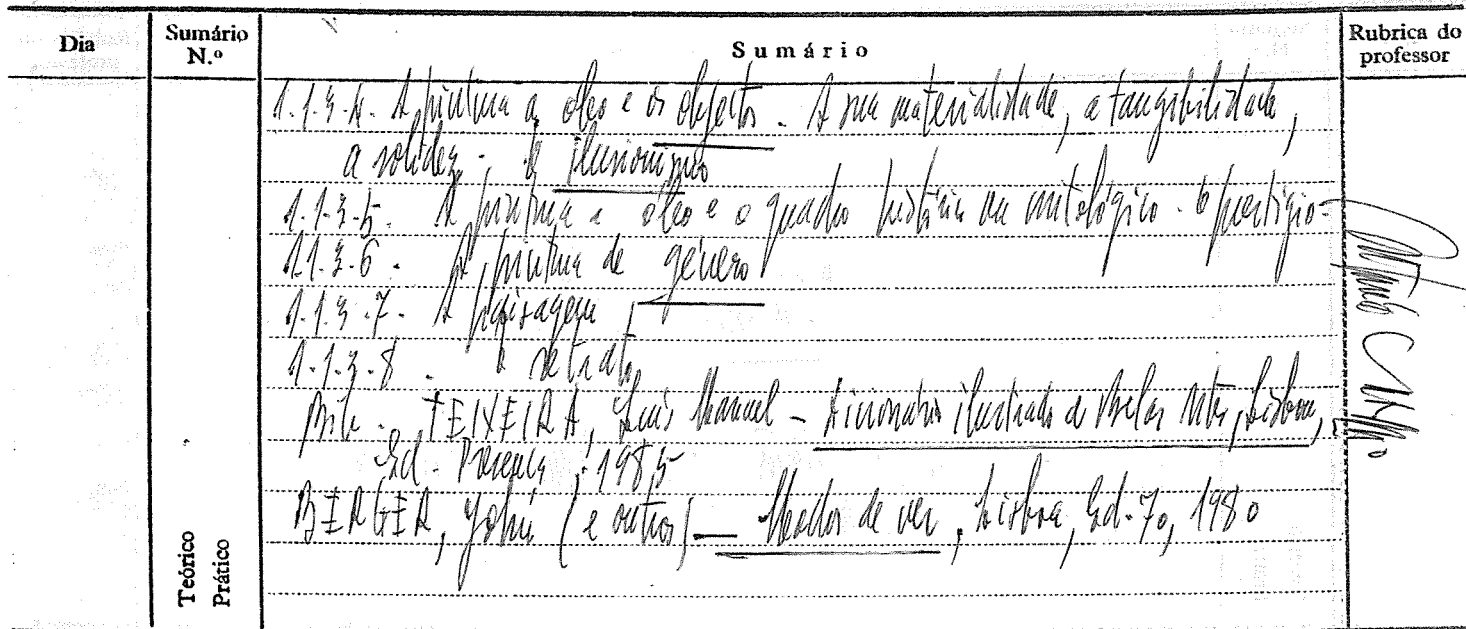 Dia
Sumário N.º
Sumário
Rubrica do professor
1.1.3.4. A pintura a óleo e os objectos. A sua materialidade, a tangibilidade,
a solidez. O ilusionismo
1.1.3.5. A pintura a óleo e o quadro histórico ou mitológico. O prestígio.
1.1.3.6. A pintura de género
1.1.3.7. A paisagem
1.1.3.8. O retrato
Bib. TEIXEIRA, Luís Manuel – Dicionário ilustrado de Belas Artes, Lisboa,
Ed. Presença, 1985
BERGER, John (e outros) – Modos de ver, Lisboa, Ed. 70, 1980
Teórico
Prático